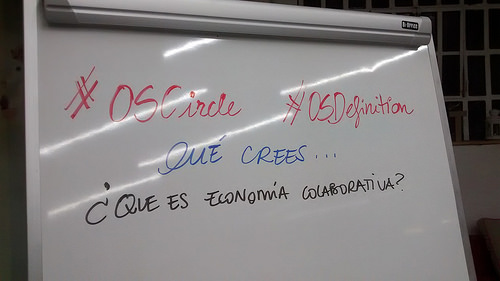 BI-OFFICE
#OSCircle #OSDefinition
QUÉ CREES...
¿QUE ES ECONOMÍA COLABORATIVA?